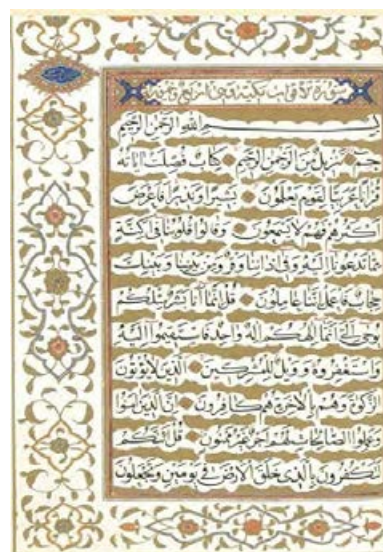 سورة الاقوات مكية وهي
بِسْمِ اللهِ الرَّحْمٰنِ الرَّحِيمِ
حٰمٓ تَنْزِيلٌ مِنَ الرَّحْمٰنِ الرَّحِيمِ كِتَابٌ فُصِّلَتْ اٰيَاتُهُ
قُرْاٰنًا عَرَبِيًّا لِقَوْمٍ يَعْلَمُونَ بَشِيرًا وَنَذِيرًا فَاَعْرَضَ
اَكْثَرُهُمْ فَهُمْ لَا يَسْمَعُونَ وَقَالُوا قُلُوبُنَا فِي اَكِنَّةٍ
مِمَّا تَدْعُونَا اِلَيْهِ وَفِي اٰذَانِنَا وَقْرٌ وَمِنْ بَيْنِنَا وَبَيْنِكَ
حِجَابٌ فَاعْمَلْ اِنَّنَا عَامِلُونَ قُلْ اِنَّمَا اَنَا بَشَرٌ مِثْلُكُمْ
يُوحٰى اِلَيَّ اَنَّمَا اِلٰهُكُمْ اِلٰهٌ وَاحِدٌ فَاسْتَقِيمُوا اِلَيْهِ
وَاسْتَغْفِرُوهُ وَوَيْلٌ لِلْمُشْرِكِينَ الَّذِينَ لَا يُؤْتُونَ
الزَّكٰوةَ وَهُمْ بِالْاٰخِرَةِ هُمْ كَافِرُونَ اِنَّ الَّذِينَ اٰمَنُوا
وَعَمِلُوا الصَّالِحَاتِ لَهُمْ اَجْرٌ غَيْرُ مَمْنُونٍ قُلْ اَئِنَّكُمْ
لَتَكْفُرُونَ بِالَّذِي خَلَقَ الْاَرْضَ فِي يَوْمَيْنِ وَتَجْعَلُونَ